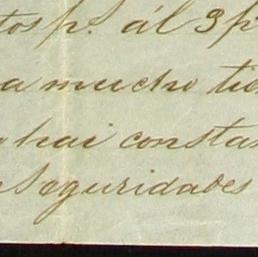 tos p.r al 3 p
a mucho tie
hai consta
Seguridades